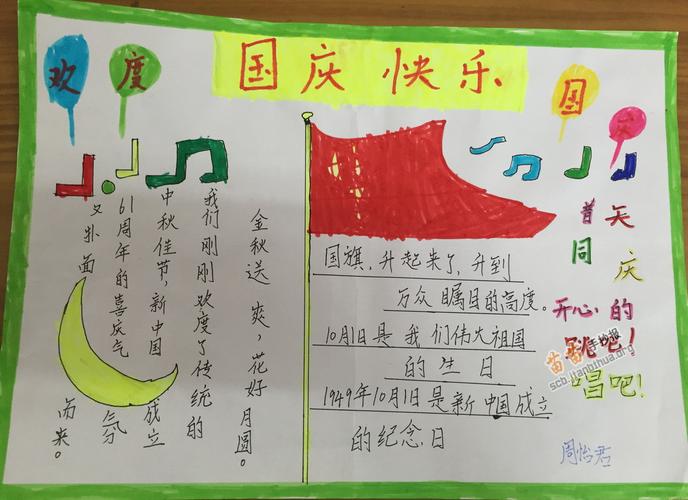 国庆快乐
欢度
国庆
金秋送爽，花好月圆。
我们刚刚欢度了传统的
中秋佳节，新中国成立
61周年的喜庆气氛
又扑面而来。
国旗，升起来了，升到
万众瞩目的高度。
10月1日是我们伟大祖国
的生日
1949年10月1日是新中国成立
的纪念日
普天
同庆
开心的
跳吧！
唱吧！
周怡君
苗苗手抄报
scb.jianbihua.org